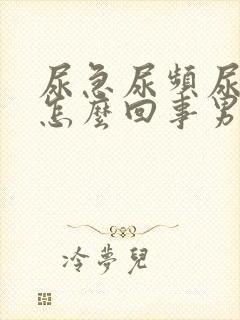 尿急尿頻尿
怎麼回事男
冷夢兒